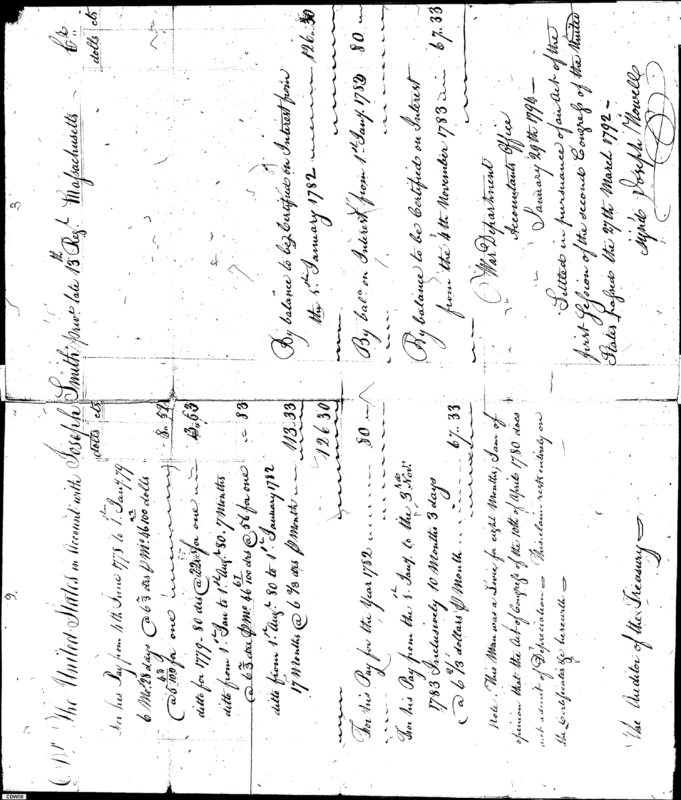 Dr. The United States in Account with Joseph Smith priv.e late 13th Reg.t Massachusetts Cr.
dolls cts
For his Pay from 4th June 1778 to 1st Jany 79
6 Mo 28 days @ 6 2/3 drs
@ for one
ditto for 1779 - 80 drs @ for one
ditto from 1st Jan to 1st Augt 80. 7 Months
@ 6 2/3 drs @ 56 for one - 83
ditto from 1st Augt 80 to 1st January 1782
17 Months @ 6 2/3 drs p Month 113.33
126 30
For his Pay for the Year 1782 80
For his Pay from the 1st Jany to the 3rd Novr
1783 Inclusively 10 Months 3 days
@ 6 2/3 dollars p Month 67.33
Note. This Man was a Levie for eight Months, I am of
opinion that the Act of Congress of the 10th of April 1780 does
not admit of Depreciation This claim rests entirely on
the Certificates &c herewith
The Auditor of the Treasury
dolls cts
By balance to be Certified on Interest from
the 1st January 1782 126.30
By bala on Interest from 1st Jany 1783 80
By balance to be Certified on Interest
from the 4th November 1783 67.33
War Department
Accountants Office
January 29th 1794
Settled in pursuance of an Act of the
first Session of the second Congress of the United
States passed the 27th March 1792
Signed Joseph Howell
3
CDW08